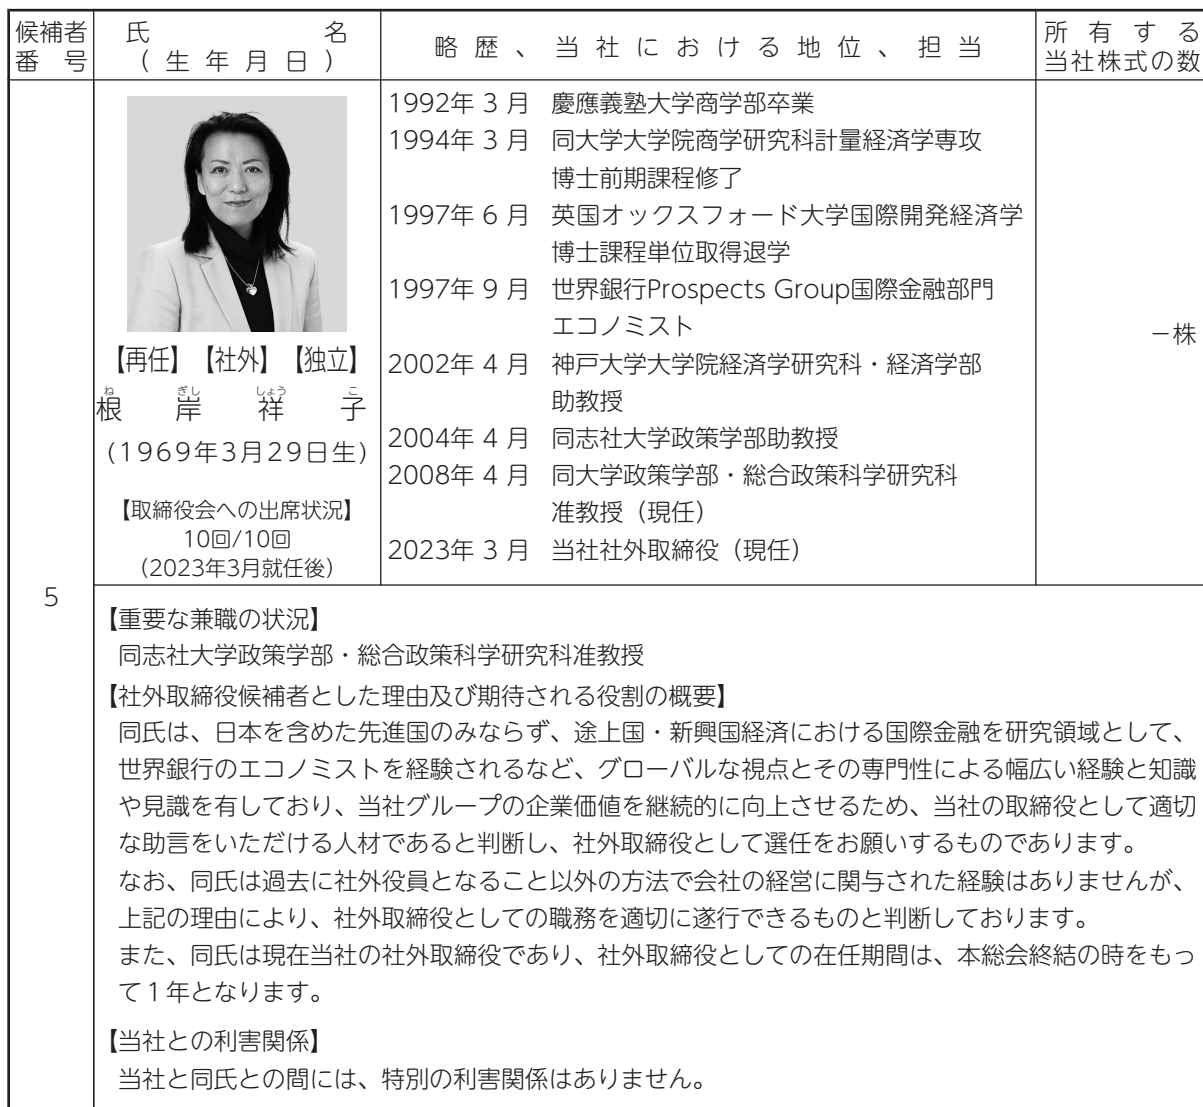 候補者番号
氏名(生年月日)
略歴、当社における地位、担当
所有する当社株式の数
5
【再任】【社外】【独立】
ね ぎし しょう こ
根岸祥子
(1969年3月29日生)
【取締役会への出席状況】
10回/10回
(2023年3月就任後)
1992年3月 慶應義塾大学商学部卒業
1994年3月 同大学大学院商学研究科計量経済学専攻
博士前期課程修了
1997年6月 英国オックスフォード大学国際開発経済学
博士課程単位取得退学
1997年9月 世界銀行Prospects Group国際金融部門
エコノミスト
2002年4月 神戸大学大学院経済学研究科・経済学部
助教授
2004年4月 同志社大学政策学部助教授
2008年4月 同大学政策学部・総合政策科学研究科
准教授（現任）
2023年3月 当社社外取締役（現任）
－株
【重要な兼職の状況】
同志社大学政策学部・総合政策科学研究科准教授
【社外取締役候補者とした理由及び期待される役割の概要】
同氏は、日本を含めた先進国のみならず、途上国・新興国経済における国際金融を研究領域として、
世界銀行のエコノミストを経験されるなど、グローバルな視点とその専門性による幅広い経験と知識
や見識を有しており、当社グループの企業価値を継続的に向上させるため、当社の取締役として適切
な助言をいただける人材であると判断し、社外取締役として選任をお願いするものであります。
なお、同氏は過去に社外役員となること以外の方法で会社の経営に関与された経験はありませんが、
上記の理由により、社外取締役としての職務を適切に遂行できるものと判断しております。
また、同氏は現在当社の社外取締役であり、社外取締役としての在任期間は、本総会終結の時をもっ
て１年となります。
【当社との利害関係】
当社と同氏との間には、特別の利害関係はありません。